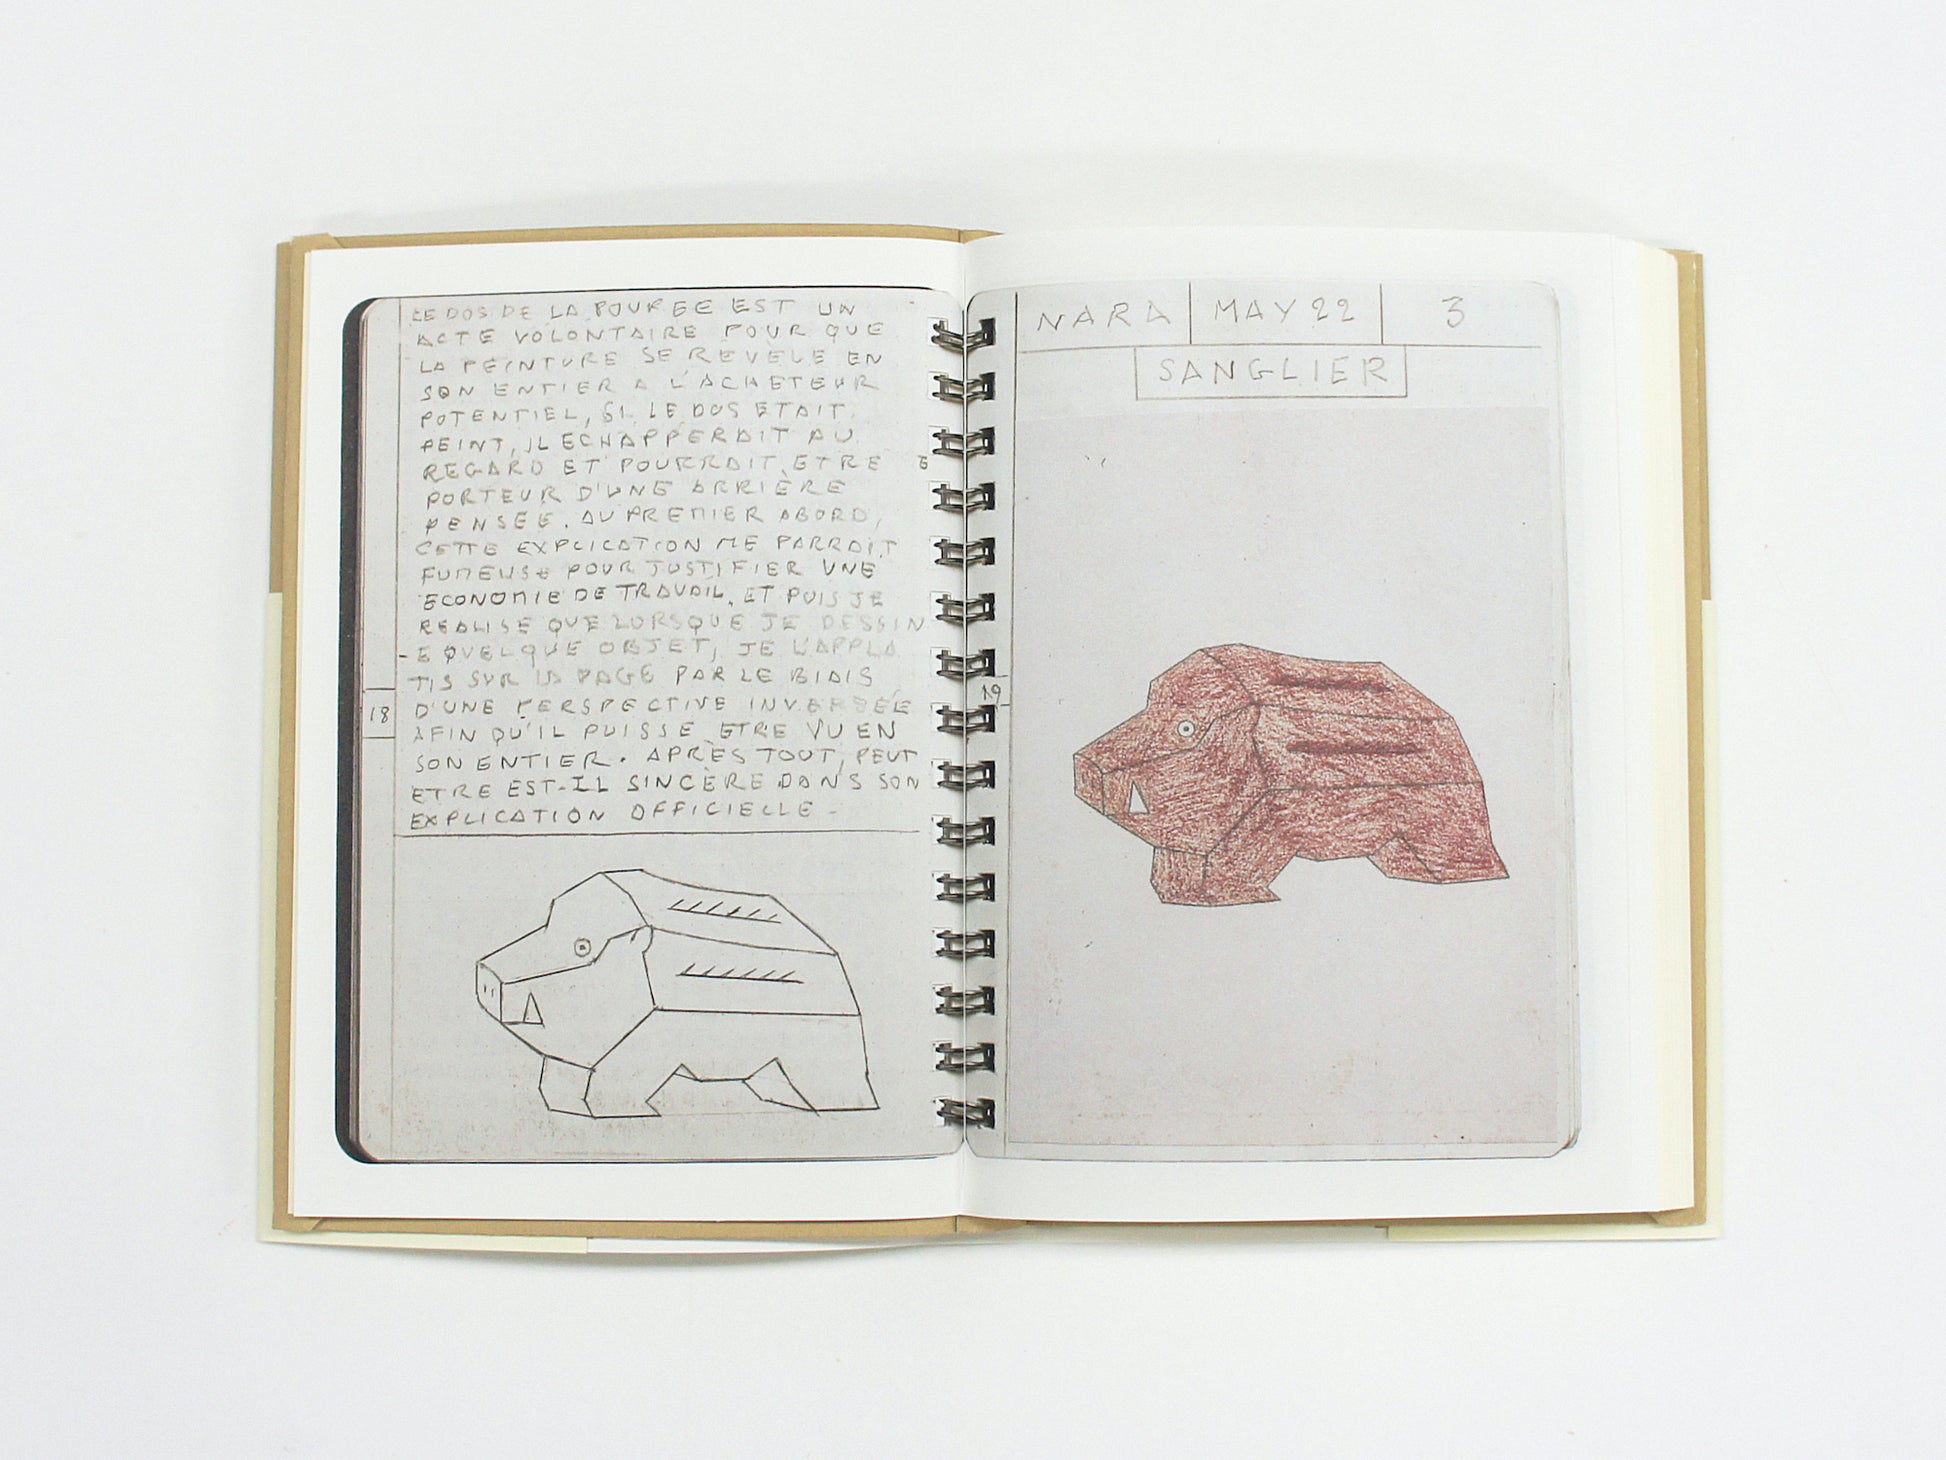 LE DOS DE LA POUPEE EST UN
ACTE VOLONTAIRE POUR QUE
LA PEINTURE SE REVELE EN
SON ENTIER A L'ACHETEUR
POTENTIEL, SI LE DOS ETAIT
PEINT, IL ECHAPPERAIT AU
REGARD ET POURRAIT ETRE E
PORTEUR D'UNE ARRIÈRE
PENSÉE. AU PREMIER ABORD,
CETTE EXPLICATION ME PARRAIT
FUMEUSE POUR JUSTIFIER UNE
ECONOMIE DE TRAVAIL. ET PUIS JE
REALISE QUE LORSQUE JE DESSIN
-E QUELQUE OBJET, JE L'APPLA
TIS SUR LA PAGE PAR LE BIAIS
D'UNE PERSPECTIVE INVERSÉE
AFIN QU'IL PUISSE ETRE VU EN
SON ENTIER. APRÈS TOUT, PEUT
ETRE EST-IL SINCÈRE DANS SON
EXPLICATION OFFICIELLE -
18
NARA MAY 22 3
SANGLIER
19